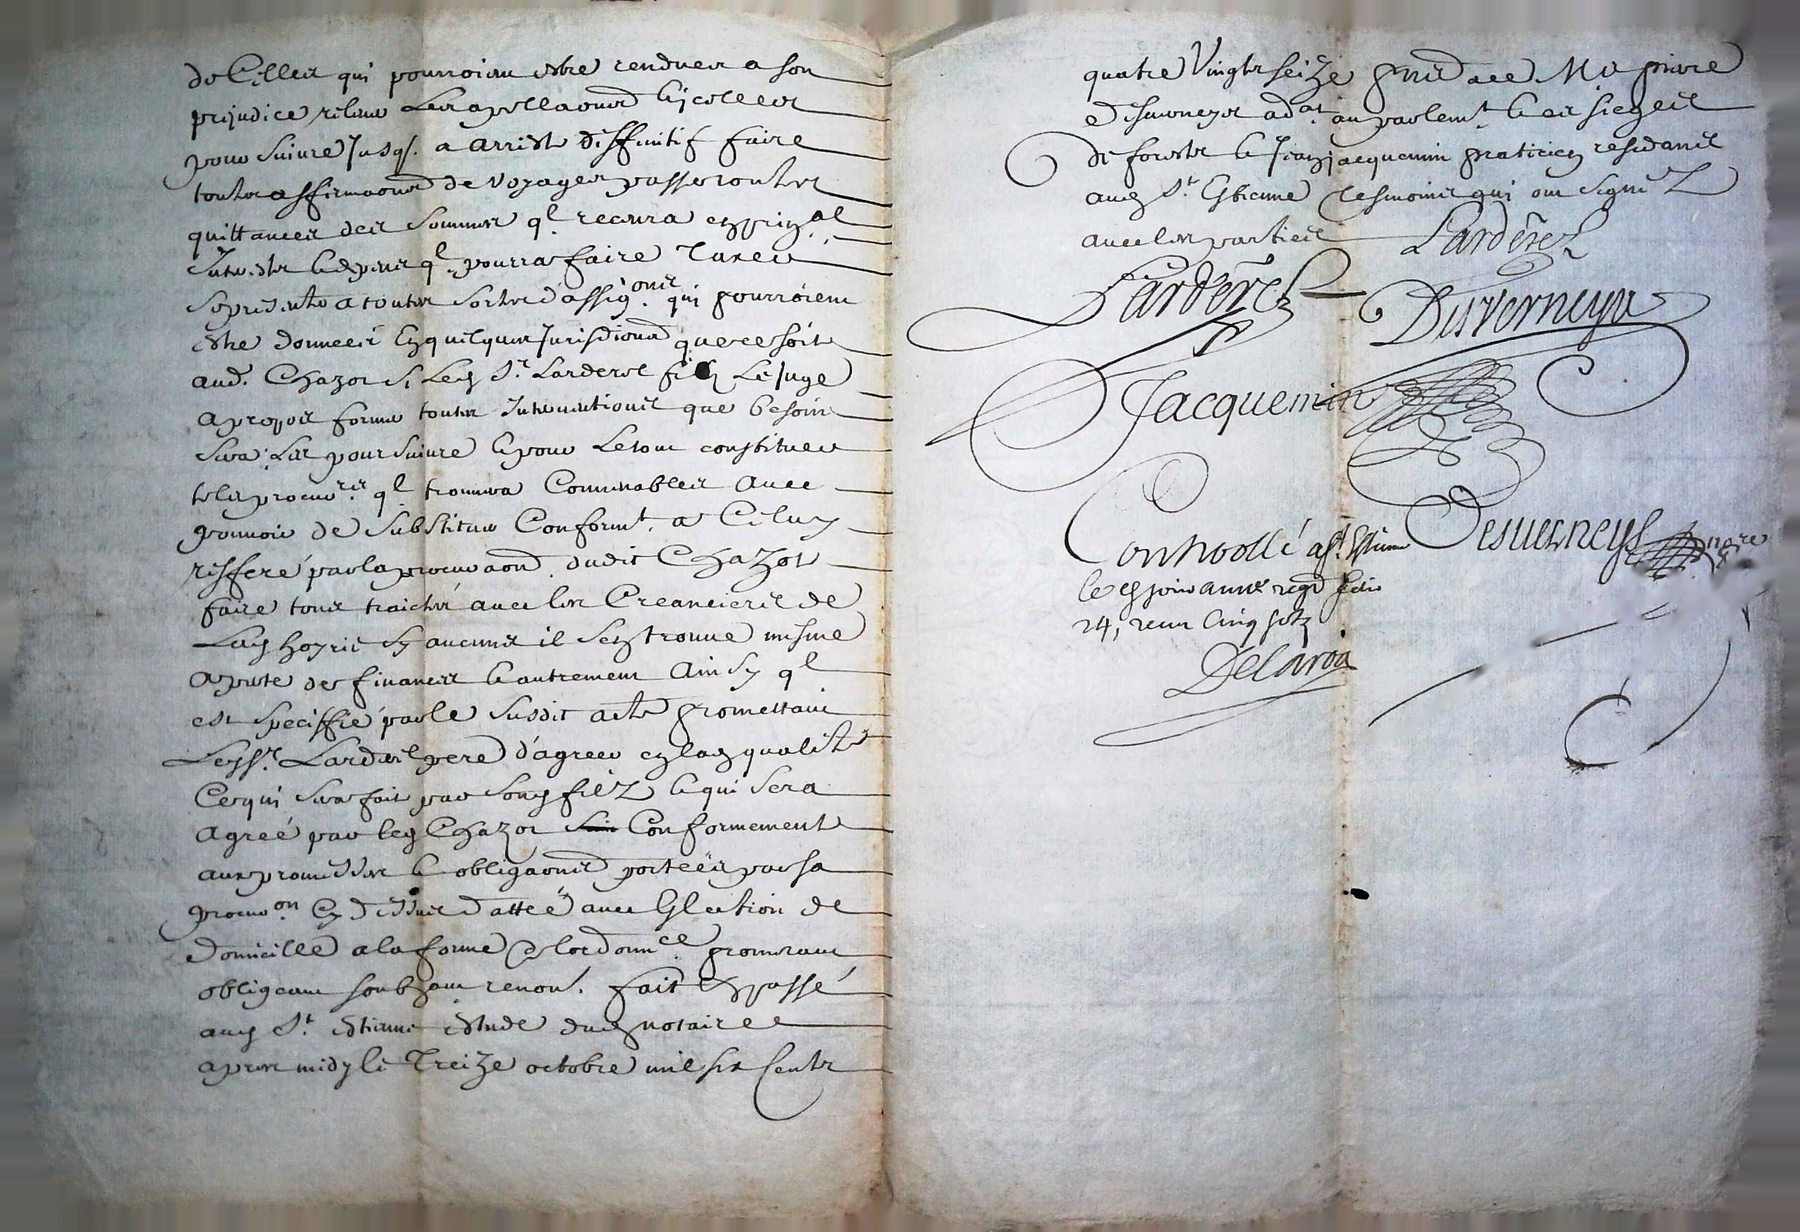 de Celles qui pourroient estre rendues a son
prejudice relever Les apellaons et icelles
poursuivre jusq. a arrest diffinitif faire
toutes affirmaons de voyages passer toutes
quittances des sommes ql recevra en prin.al
Interests et despens ql pourra faire Taxer
se presenter a toutes sortes d'assig.ons qui pourroient
estre donnees en quelques jurisdions que ce soit
aud. Chazot si led Sr. Larderet fils Le juge
a propos former toutes Interventions que besoin
sera Les poursuivre et pour Le tout constituer
tels procur.rs ql trouvera Convenables avec
pouvoir de substituer Conform.t a Celuy
refferé par la procuraon dudit Chazot
faire tous traictés avec les Creanciers de
Lad hoyrie sy aucuns il s'en trouve mesme
a perte de finances et autrement Ainsy ql
est speciffié par le susdit acte promettant
Led Sr. Larderet pere d'agreer en lad qualité
Ce qui sera fait par Sond filz et qui sera
agreé par led Chazot Conformement
aux promesses et obligaons portées par sa
procur.on Cy dessus dattée avec Election de
domicille a la forme de lordonn.ce promettant
obligeant renon.t fait et passé
aud St. Estienne estude dud notaire
apres midy le Treize octobre mil six Cents
quatre Vingts seize M.e pierre
Desverneys ad.at au parlem.t et es sieges
de forests et Jean jacquemin praticien residants
aud St. Estienne Tesmoins qui ont signé
avec les parties Larderet
Larderet Desverneys
Jacquemin
Controollé a St. Estienne Desverneys no.re
le jour an et regre
24, receu Cinq solz